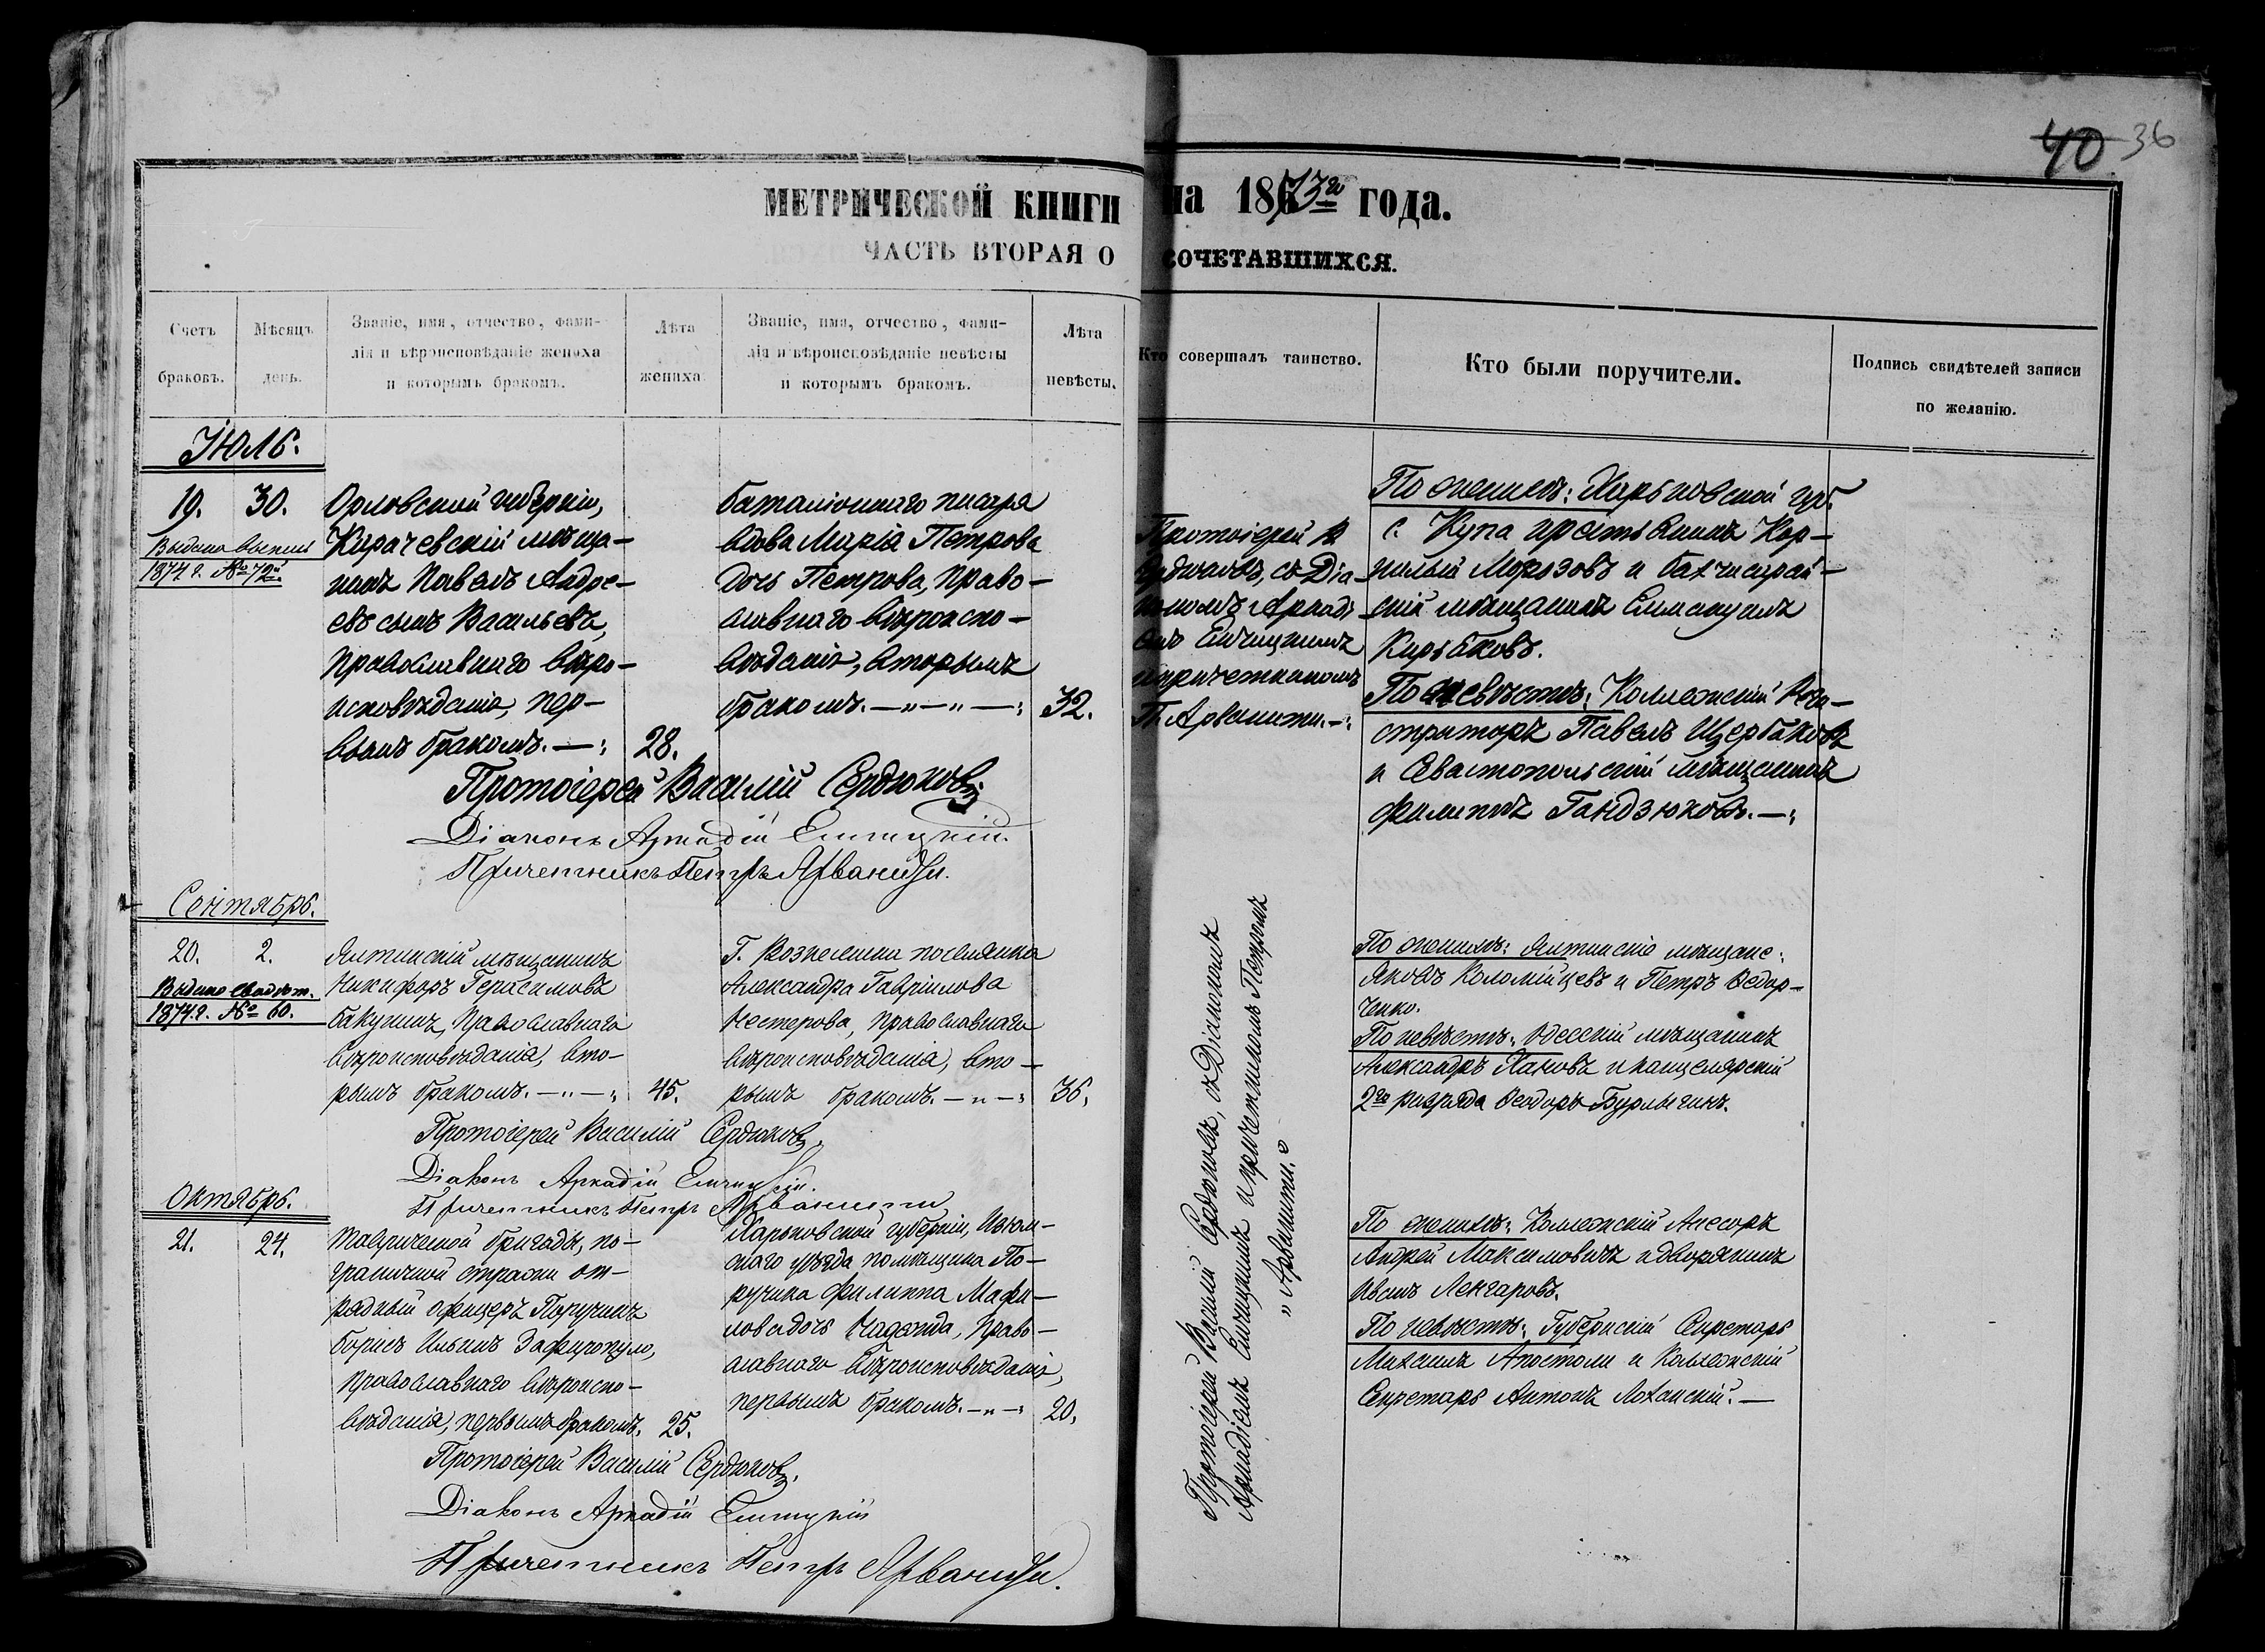 40 36
МЕТРИЧЕСКОЙ КНИГИ на 1873го года.
ЧАСТЬ ВТОРАЯ О СОЧЕТАВШИХСЯ.
Счетъ браковъ.
Мѣсяцъ день.
Званіе, имя, отчество, фами-
лія и вѣроисповѣданіе жениха
и которымъ бракомъ.
Лѣта
жениха.
Званіе, имя, отчество, фами-
лія и вѣроисповѣданіе невѣсты
и которымъ бракомъ.
Лѣта
невѣсты.
Кто совершалъ таинство.
Кто были поручители.
Подпись свидѣтелей записи
по желанію.
Іюль.
19. 30.
1874 г. № 72й.
Орловской губерніи,
Карачевскій мѣща-
нинъ Павелъ Андре-
евъ сынъ Васильевъ,
православнаго вѣро-
исповѣданія, пер-
вымъ бракомъ. 28.
баталіоннаго писаря
вдова Марія Петрова
дочь Петрова, право-
славнаго вѣроиспо-
вѣданія, вторымъ
бракомъ. 32.
Протоіерей В.
Сердюковъ, съ Діа-
кономъ Аркаді-
емъ Енчицкимъ
и причетникомъ
П. Арванити.
По женихѣ: Харьковской губ.
с. Купа крестьянинъ Кор-
нилій Морозовъ и бахчисарай-
скій мѣщанинъ
Кирьяковъ.
По невѣстѣ: Коллежскій Реги-
страторъ Павелъ Щербаковъ
и Севастопольскій мѣщанинъ
Филиппъ Гандзюковъ.
Протоіерей Василій Сердюковъ
Діаконъ Аркадій Енчицкій.
Причетникъ Петръ Арваниди.
Сентябрь.
20. 2.
Выдано свидѣт.
1874 г. № 60.
Ялтинскій мѣщанинъ
Никифоръ Герасимовъ
Бакунинъ, православнаго
вѣроисповѣданія, вто-
рымъ бракомъ. 45.
Г. Вознесенска поселянка
Александра Гавріилова
Нестерова, православнаго
вѣроисповѣданія, вто-
рымъ бракомъ. 36.
По женихѣ: Ялтинскіе мѣщане:
Яковъ Коломійцевъ и Петръ Ѳедор-
ченко.
По невѣстѣ: Одесскій мѣщанинъ
Александръ Пановъ и канцелярскій
2го разряда Ѳеодоръ Бурлыгинъ.
Протоіерей Василій Сердюковъ, съ Діакономъ
Аркадіемъ Енчицкимъ и причетникомъ Петромъ
„Арванити."
Протоіерей Василій Сердюковъ.
Діаконъ Аркадій Енчицкій.
Причетникъ Петръ Арванити
Октябрь.
21. 24.
Таврической бригады, по-
граничной стражи от-
рядный офицеръ Поручикъ
Борисъ Ильинъ Зафиропуло,
православнаго вѣроиспо-
вѣданія, первымъ бракомъ. 25.
Харьковской губерніи, Изюм-
скаго уѣзда помѣщика По-
ручика Филиппа
дочь Надежда, право-
славнаго вѣроисповѣданія,
первымъ бракомъ. 20.
По женихѣ: Коллежскій Асесоръ
Андрей Максимовичъ и дворянинъ
Иванъ Ленгаровъ.
По невѣстѣ: Губернскій Секретарь
Михаилъ Апостоли и Коллежскій
Секретарь Антонъ Лоханскій.
Протоіерей Василій Сердюковъ.
Діаконъ Аркадій Енчицкій
Причетникъ Петръ Арваниди.